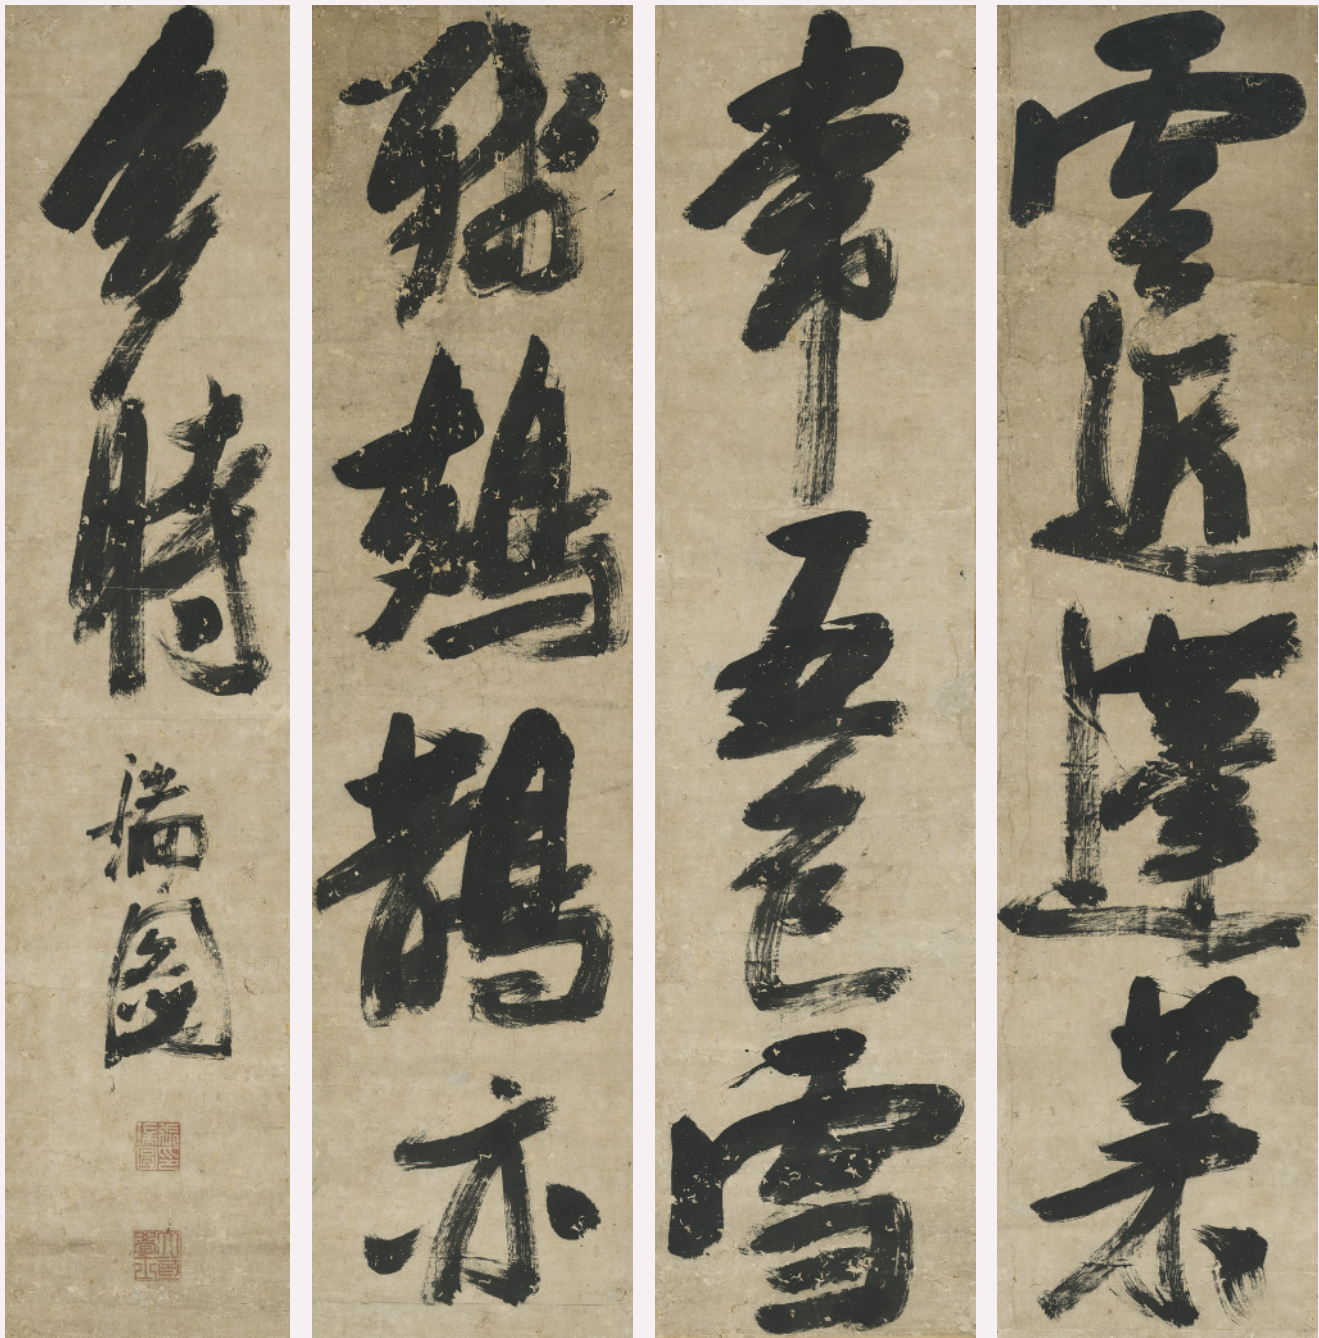 雲近蓬萊
常五色雪
殘鳷鵲亦
多時
瑞圖